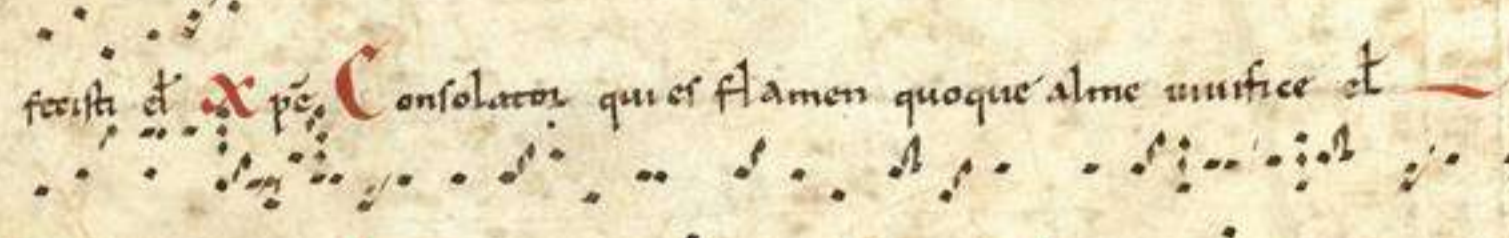 fecisti el̄ Xpē Consolator qui es flamen quoque alme uiuifice el̄